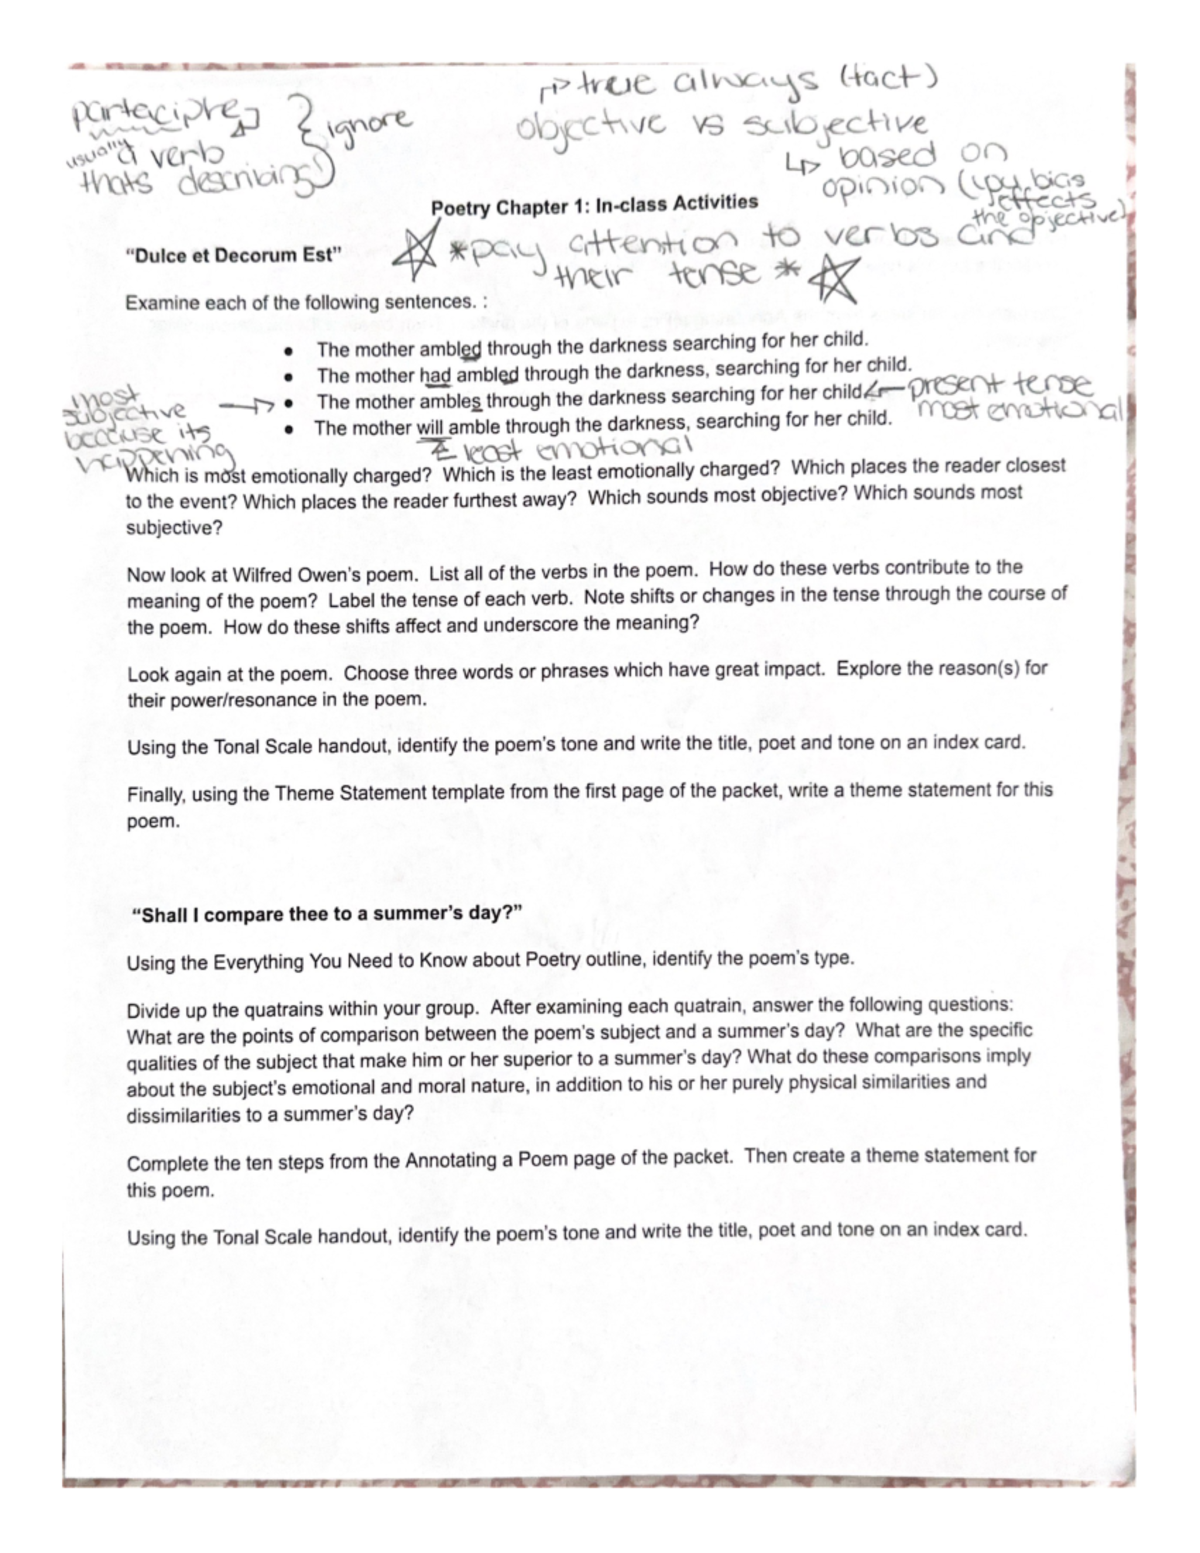 ↱> true always (fact)
partacipite } ignore
objective vs subjective
usually a verb
thats describing
↳ based on
opinion ( bias
effects
the objective)
Poetry Chapter 1: In-class Activities
*pay attention to verbs and
their tense *
“Dulce et Decorum Est”
Examine each of the following sentences. :
• The mother ambled through the darkness searching for her child.
• The mother had ambled through the darkness, searching for her child.
• The mother ambles through the darkness searching for her child ← present tense
most emotional
• The mother will amble through the darkness, searching for her child.
most
subjective
because its
happening
least emotional
Which is most emotionally charged? Which is the least emotionally charged? Which places the reader closest
to the event? Which places the reader furthest away? Which sounds most objective? Which sounds most
subjective?
Now look at Wilfred Owen’s poem. List all of the verbs in the poem. How do these verbs contribute to the
meaning of the poem? Label the tense of each verb. Note shifts or changes in the tense through the course of
the poem. How do these shifts affect and underscore the meaning?
Look again at the poem. Choose three words or phrases which have great impact. Explore the reason(s) for
their power/resonance in the poem.
Using the Tonal Scale handout, identify the poem’s tone and write the title, poet and tone on an index card.
Finally, using the Theme Statement template from the first page of the packet, write a theme statement for this
poem.
“Shall I compare thee to a summer’s day?”
Using the Everything You Need to Know about Poetry outline, identify the poem’s type.
Divide up the quatrains within your group. After examining each quatrain, answer the following questions:
What are the points of comparison between the poem’s subject and a summer’s day? What are the specific
qualities of the subject that make him or her superior to a summer’s day? What do these comparisons imply
about the subject’s emotional and moral nature, in addition to his or her purely physical similarities and
dissimilarities to a summer’s day?
Complete the ten steps from the Annotating a Poem page of the packet. Then create a theme statement for
this poem.
Using the Tonal Scale handout, identify the poem’s tone and write the title, poet and tone on an index card.